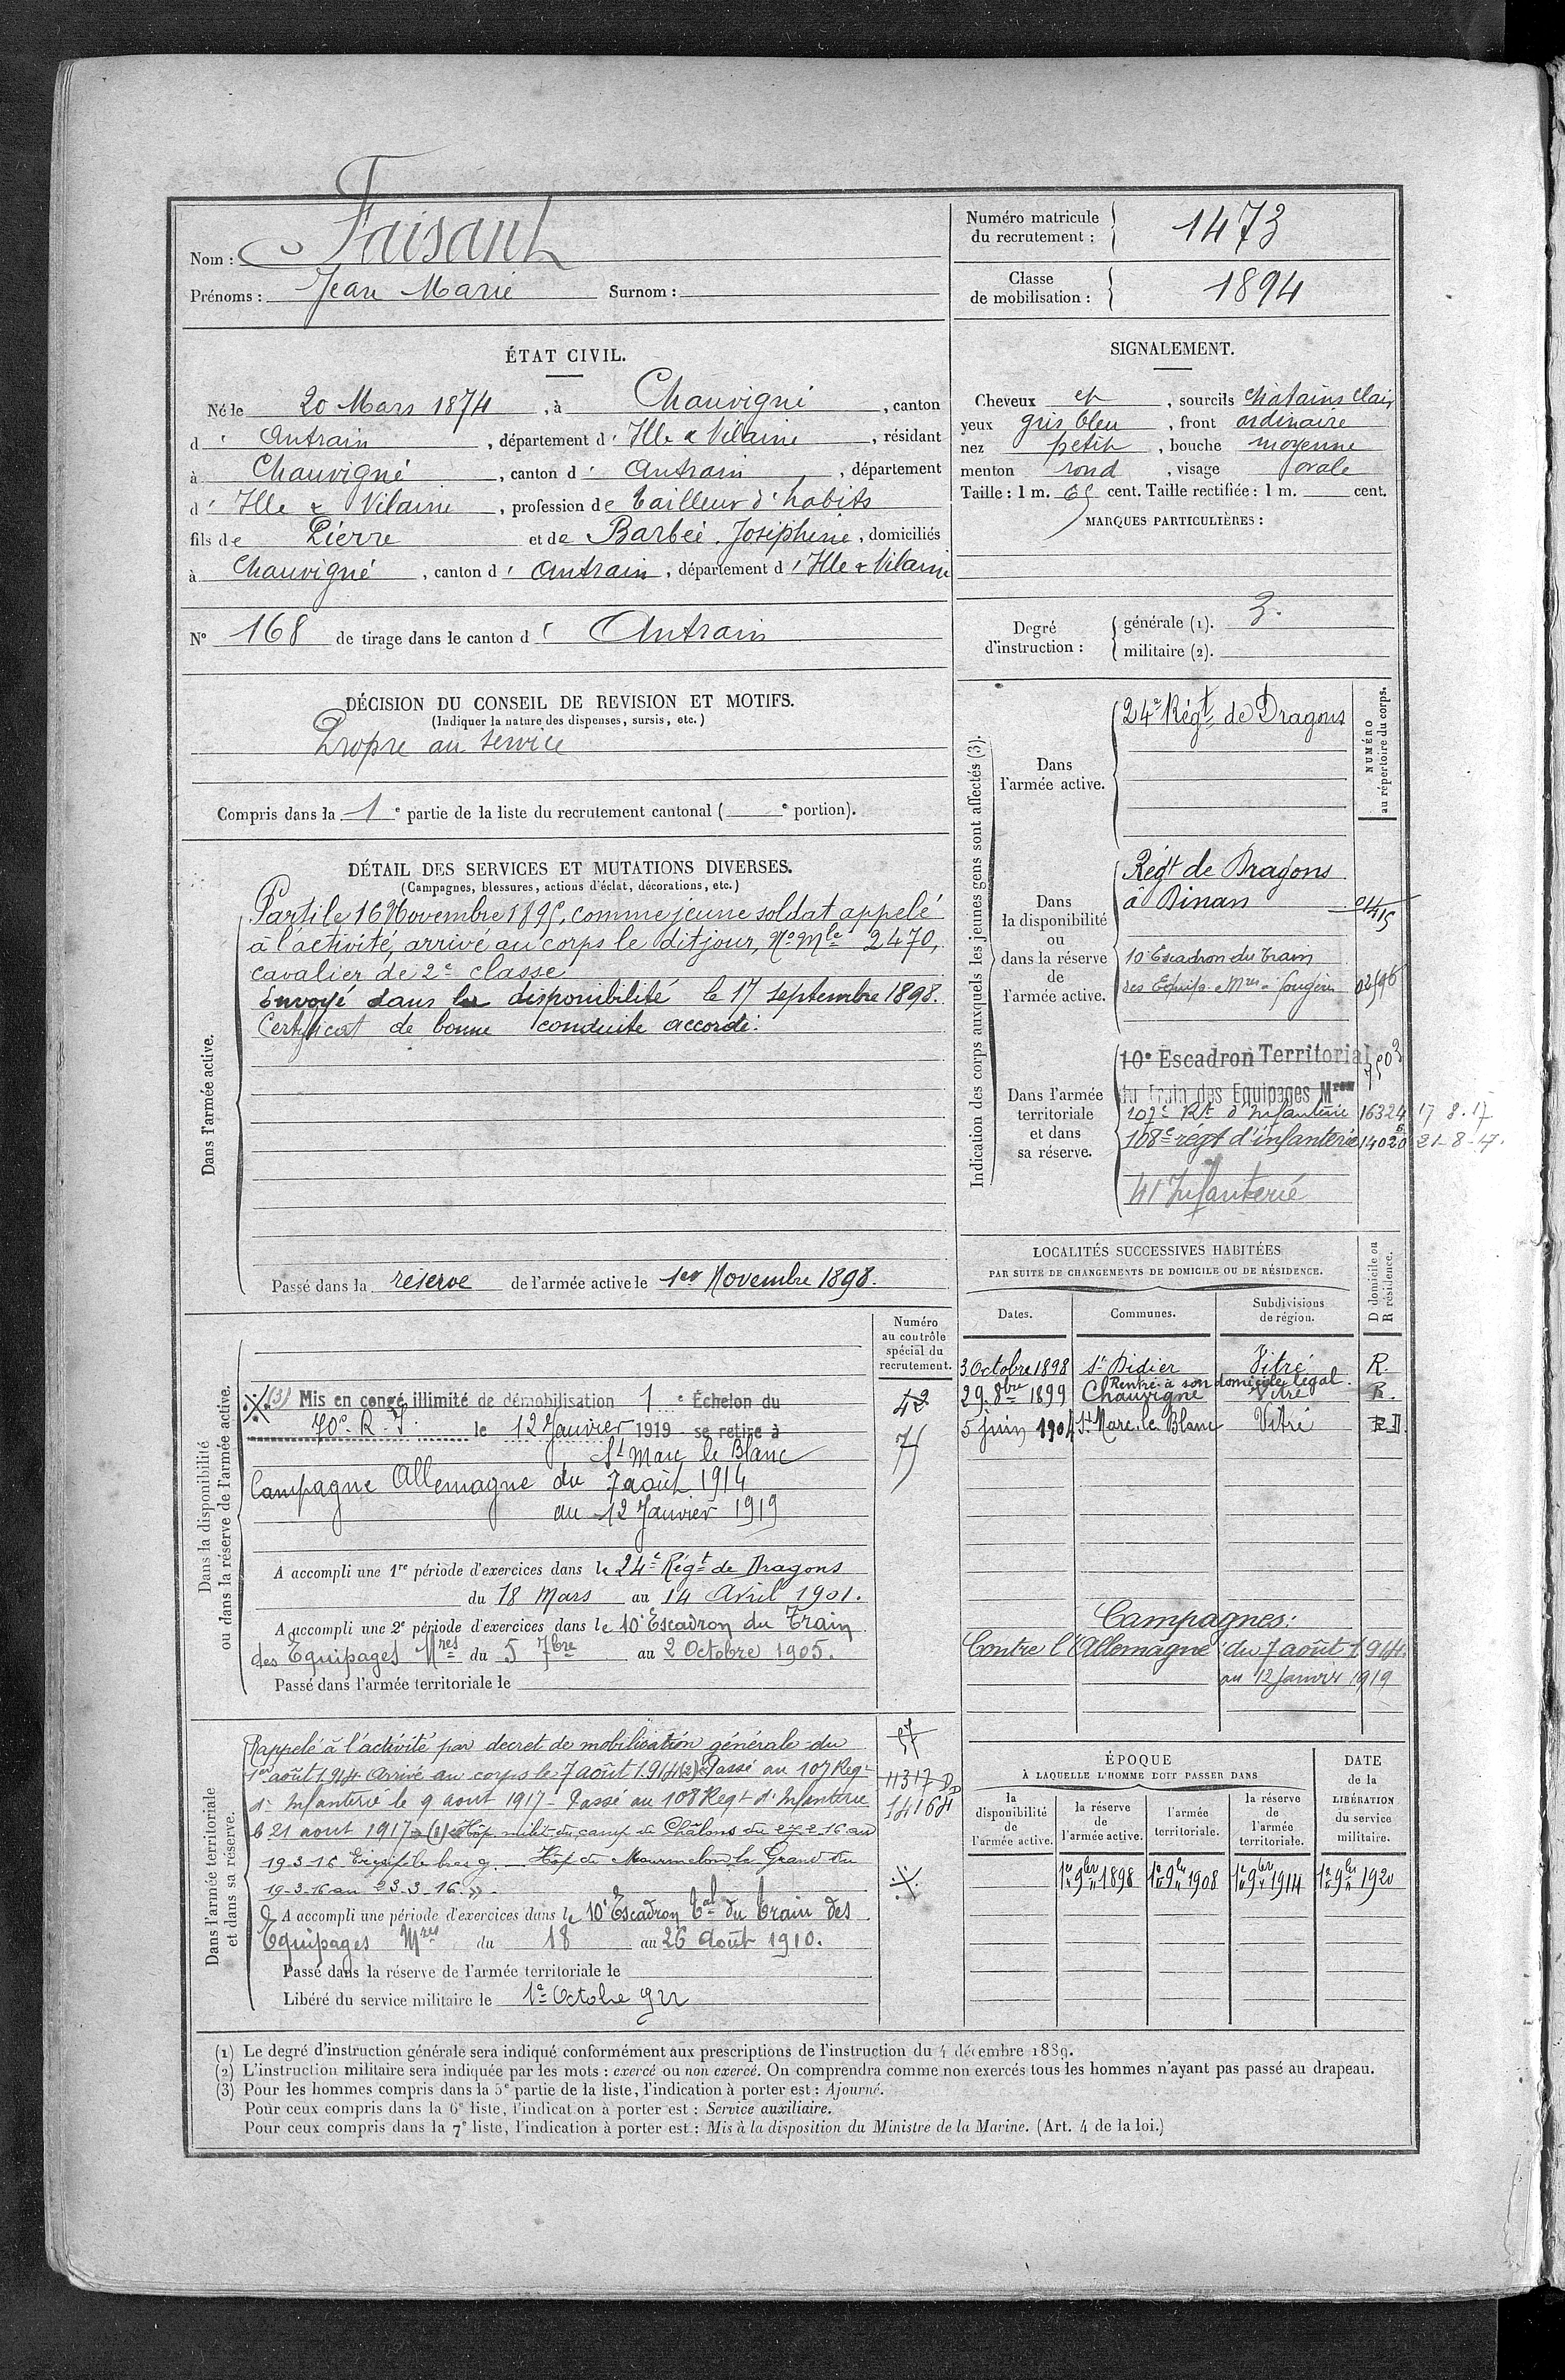 Nom : Faisant
Prénoms : Jean Marie Surnom :
Numéro matricule du recrutement : 1473
Classe de mobilisation : 1894
ÉTAT CIVIL.
Né le 20 Mars 1874, à Chauvigné, canton
d' Antrain, département d' Ille & Vilaine, résidant
à Chauvigné, canton d' Antrain, département
d' Ille & Vilaine, profession de tailleur d'habits
fils de Pierre et de Barbée Joséphine, domiciliés
à Chauvigné, canton d' Antrain, département d' Ille & Vilaine
N° 168 de tirage dans le canton d' Antrain
SIGNALEMENT.
Cheveux et, sourcils chatains clair
yeux gris bleu, front ordinaire
nez petit, bouche moyenne
menton rond, visage ovale
Taille : 1 m. 65 cent. Taille rectifiée : 1 m. cent.
MARQUES PARTICULIÈRES :
Degré d'instruction :
générale (1). 3.
militaire (2).
DÉCISION DU CONSEIL DE REVISION ET MOTIFS.
(Indiquer la nature des dispenses, sursis, etc.)
Propre au service
Compris dans la 1e partie de la liste du recrutement cantonal ( e portion).
DÉTAIL DES SERVICES ET MUTATIONS DIVERSES.
(Campagnes, blessures, actions d'éclat, décorations, etc.)
Dans l'armée active.
Parti le 16 Novembre 1895, comme jeune soldat appelé
à l'activité, arrivé au corps le dit jour, No Mle 2470,
cavalier de 2e classe
Envoyé dans la disponibilité le 17 septembre 1898.
Certificat de bonne conduite accordé.
Passé dans la réserve de l'armée active le 1er Novembre 1898.
Indication des corps auxquels les jeunes gens sont affectés (3).
NUMÉRO au répertoire du corps.
Dans l'armée active.
24e Régt de Dragons
Dans la disponibilité ou dans la réserve de l'armée active.
Régt de Dragons
à Dinan
10e Escadron du Train
des Equip. Mres Fougères 02596
Dans l'armée territoriale et dans sa réserve.
10e Escadron Territorial
du Train des Equipages Mres
7503
107e Rt d'Infanterie 16324 17.8.17
108e régt d'infanterie 21-8-17.
41 Infanterie
LOCALITÉS SUCCESSIVES HABITÉES
PAR SUITE DE CHANGEMENTS DE DOMICILE OU DE RÉSIDENCE.
D domicile ou R résidence.
Dates. Communes. Subdivisions de région.
3 Octobre 1898 St Didier Vitré R.
Rentré à son domicile légal.
29. 8bre 1899 Chauvigné Vitré R.
5 juin 1904 St Marc le Blanc Vitré R D.
Campagnes:
Contre l'Allemagne du 7 août 1914.
au 12 Janvier 1919
Dans la disponibilité ou dans la réserve de l'armée active.
Numéro au contrôle spécial du recrutement.
42
75
(3) Mis en congé illimité de démobilisation 1e Échelon du
70e R.I. le 12 Janvier 1919 se retire à
St Marc le Blanc
Campagne Allemagne du 7 août 1914
au 12 Janvier 1919
A accompli une 1re période d'exercices dans le 24e Régt de Dragons
du 18 Mars au 14 Avril 1901.
A accompli une 2e période d'exercices dans le 10e Escadron du Train
des Equipages Mres du 5 7bre au 2 Octobre 1905.
Passé dans l'armée territoriale le
Dans l'armée territoriale et dans sa réserve.
57
11317
14164
Rappelé à l'activité par decret de mobilisation générale du
1er août 1914 Arrivé au corps le 7 août 1914 (2) Passé au 107 Regt
d'Infanterie le 9 aout 1917 - Passé au 108 Regt d'Infanterie
le 21 aout 1917 (1) Hôp. milit. du camp de Châlons du 27-2-16 au
19-3-16 bras g. Hôp. de Mourmelon le Grand du
19-3-16 au 23-3-16.»
A accompli une période d'exercices dans le 10e Escadron Tal du train des
Equipages Mres du 18 au 26 Août 1910.
Passé dans la réserve de l'armée territoriale le
Libéré du service militaire le 1e Octobre 922
ÉPOQUE
À LAQUELLE L'HOMME DOIT PASSER DANS
DATE de la LIBÉRATION du service militaire.
la disponibilité de l'armée active. la réserve de l'armée active. l'armée territoriale. la réserve de l'armée territoriale.
1er 9bre 1898 1er 9bre 1908 1er 9bre 1914 1er 9bre 1920
(1) Le degré d'instruction générale sera indiqué conformément aux prescriptions de l'instruction du 4 décembre 1889.
(2) L'instruction militaire sera indiquée par les mots : exercé ou non exercé. On comprendra comme non exercés tous les hommes n'ayant pas passé au drapeau.
(3) Pour les hommes compris dans la 5e partie de la liste, l'indication à porter est : Ajourné.
Pour ceux compris dans la 6e liste, l'indication à porter est : Service auxiliaire.
Pour ceux compris dans la 7e liste, l'indication à porter est : Mis à la disposition du Ministre de la Marine. (Art. 4 de la loi.)